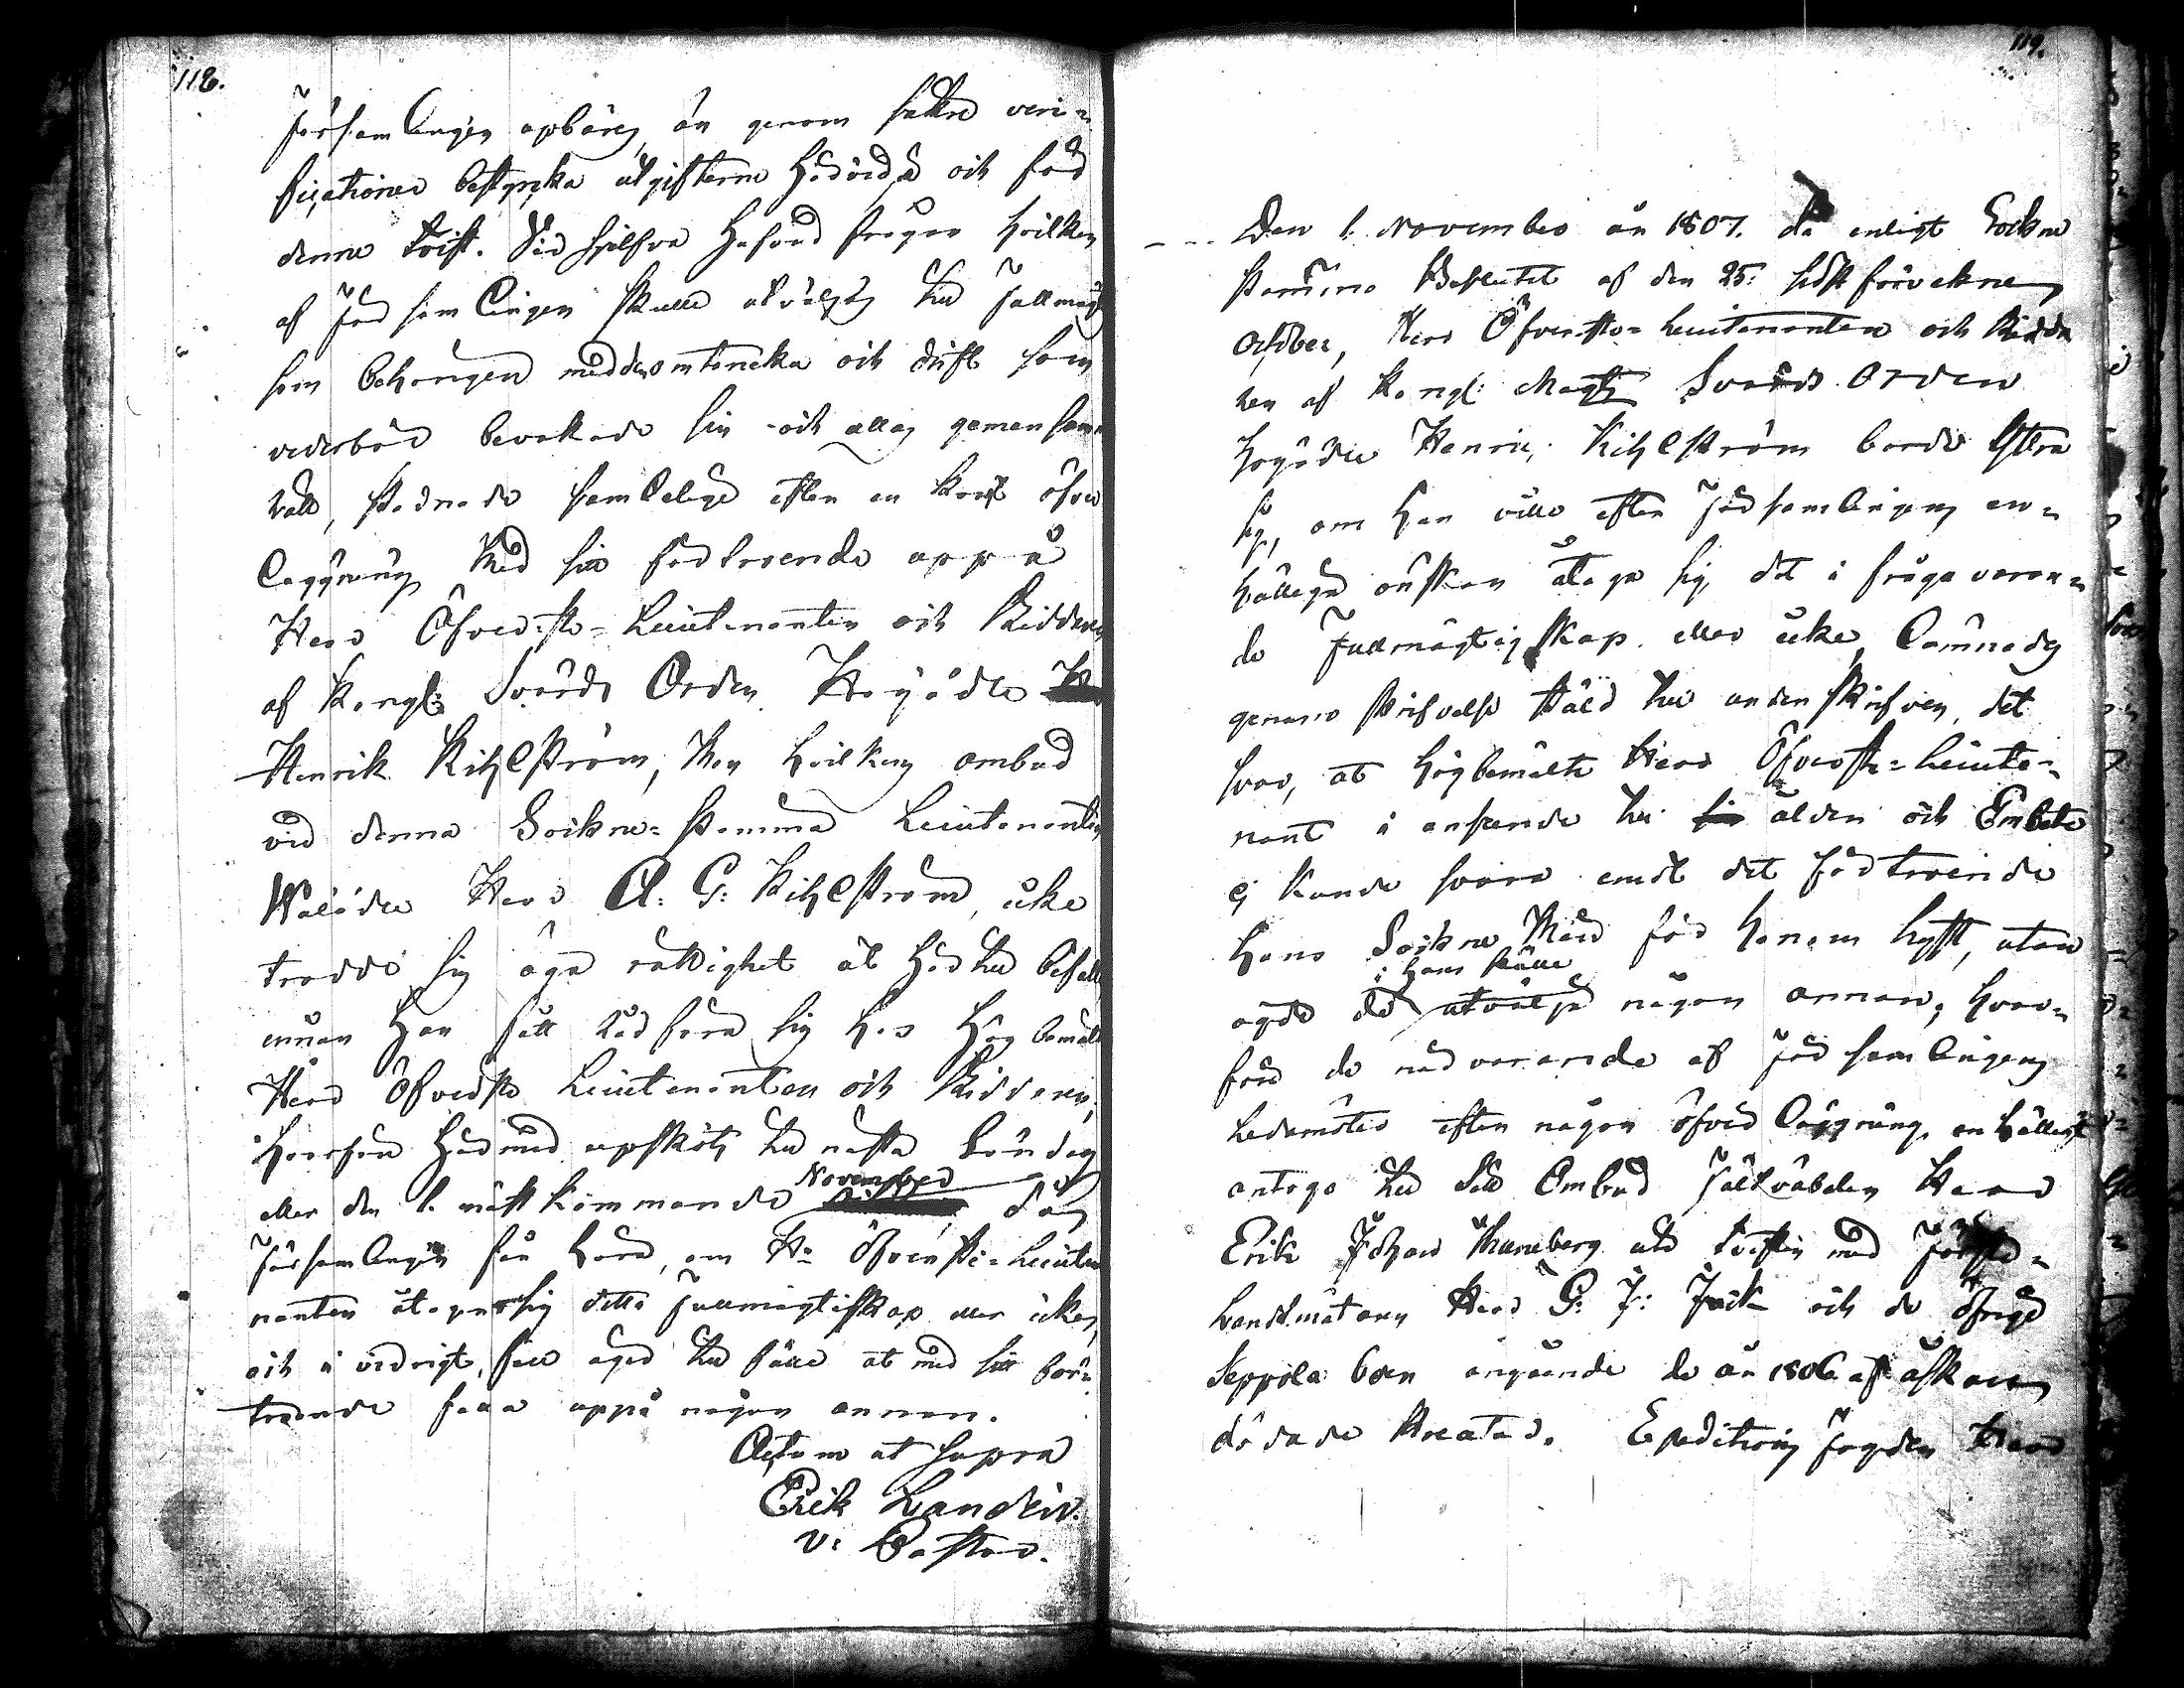 118.
Församlingen opbäres, än genom sattre veri=
ficationer bestyrka utgifterne härvid, och för
denne tvist. Vid sjelfva Hufvud frågan hvilken
af Församlingen skulle utväljas till Fullmägt
som behörigen med den omtancka och drift som
vederbör bevakade sin och allas gemensamma
rätt, stadnade samtelige efter en kort öfver
läggning med sitt förtroende oppå
Herr Öfverste=Lieutenanten och Riddaren
af Kongl: Svärds Orden Högädle
Henrik Kihlström, Men hvilkens ombud
vid denna Sockne=stämma Lieutenanten
Wälädle Herr A: G: Kihlström, icke
trodde sig äga rättighet at härtill bifalla
innan Han fått rådföra sig hos Hög bemälte
Herr Öfverste Lieutenanten och Riddaren;
Hvarföre härmed upsköts till nästa Söndag
eller den 1. näst kommande November då
Församlingen får höra, om Hr Öfverste=Lieute
nanten åtager sig detta Fullmägtigskap eller icke,
och i vidrigt fall äger till fälle at med sitt för=
troende falla uppå någon annan.
Actum ut supra
Erik Landén.
V: Pastor.
119.
Den 1. November år 1807. då enligt Sockne
stämmo Beslutet af den 25: sidst förvekne
October, Herr Öfverste=Lieutenanten och Ridda
ren af Kongl: Majts Svärds Orden
Högädle Henric Kihlström borde yttra
sig, om Han ville efter Församlingens en=
hällega önskan åtaga sig det i fråga varan=
de Fullmägtigskap eller icke, lämnades
genom skrifvelse stäld till underskrifven, det
svar, at högbemälte Herr Öfverste=Lieute=
nant i anseende till sin ålder och Embete
ej kunde svara emot det förtroende
Hans Sockne Män för honom hyst, utan
i hans ställe
ägde de utvälja någon annan, hvar=
före de närvarande af Församlingens
Ledamöter efter någon öfverläggning enhälligt
antogo till sitt Ombud Fältväbelen Herr
Erik Johan Thuneberg uti tvisten med Förste=
Landtmätaren Herr G: J: Jack och de öfrige
Seppälä boer angående de år 1806 af åskan
dödade Kreatur. Expeditions Fogden Herr